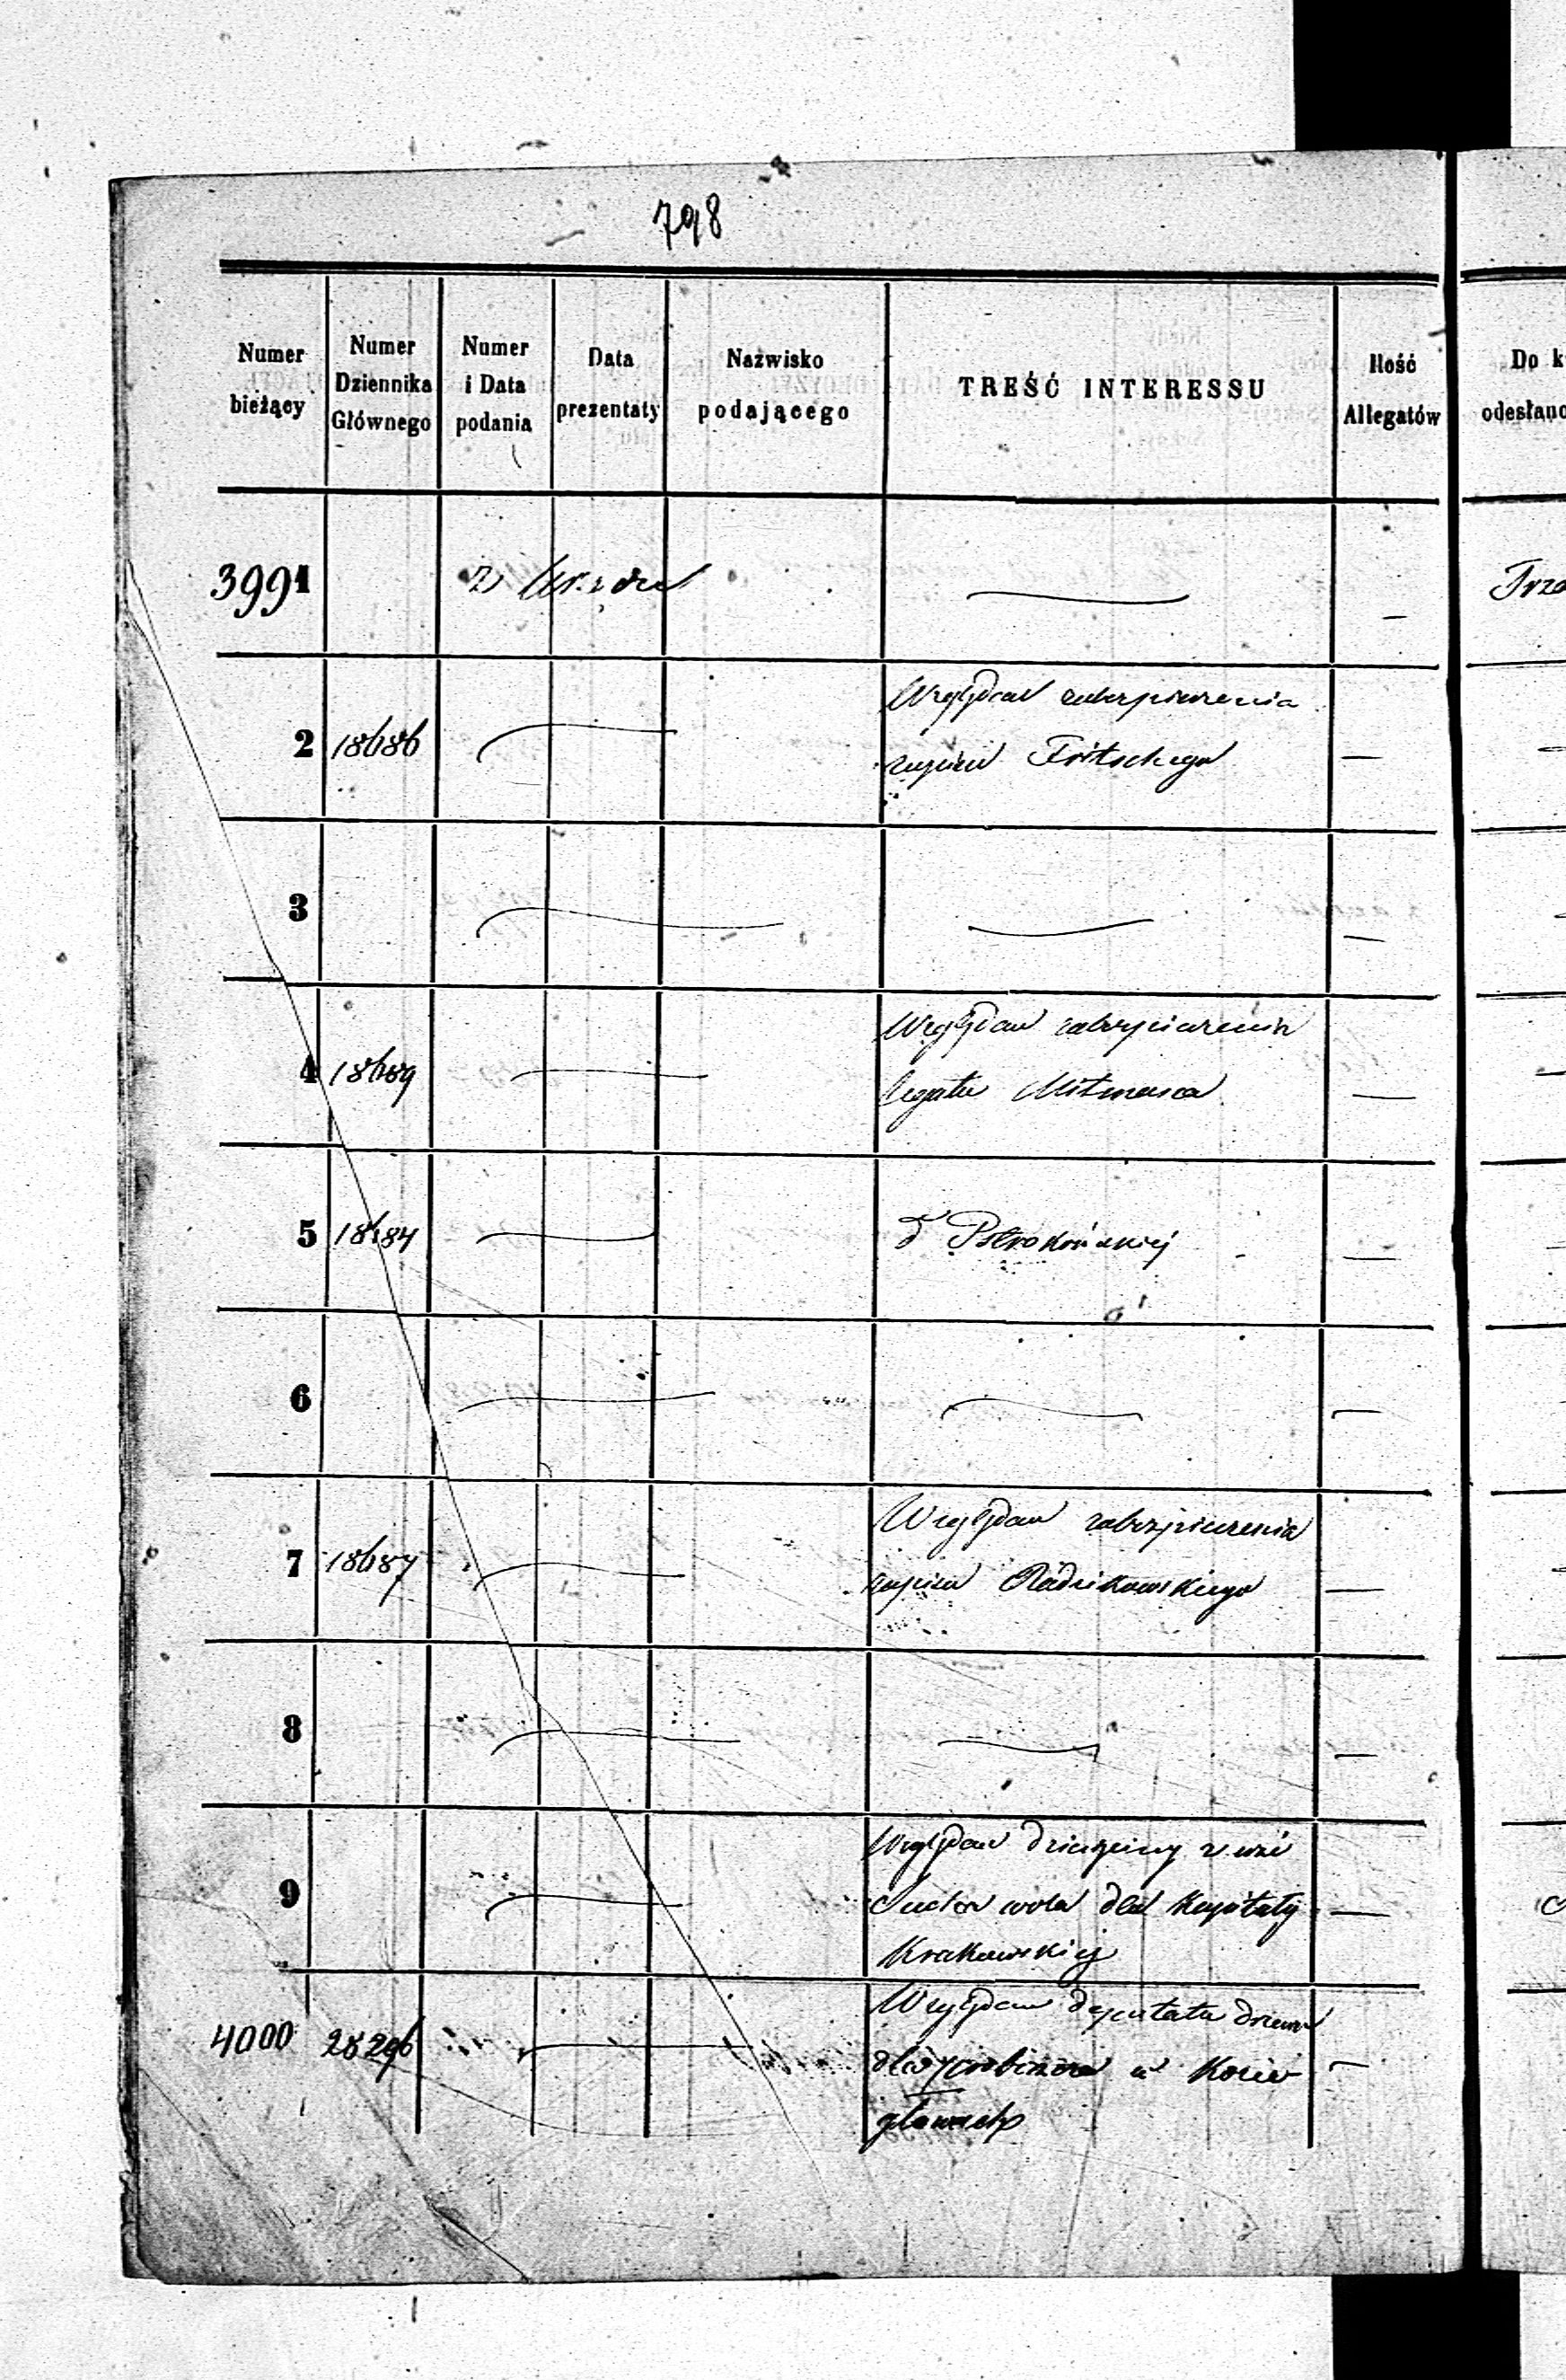 798
Numer bieżący
Numer Dziennika Głównego
Numer i Data podania
Data prezentaty
Nazwisko podającego
TREŚĆ INTERESSU
Ilość Allegatów
Do k
odesłano
3991 z Urzędu — — Trze
2 18686 — Względem zabezpieczenia
zapisu Fritschego —
3 — — —
4 18689 — Względem zabezpieczenia
legatu Mitmana —
5 18684 — d Pstrokońskiej —
6 — — —
7 18687 — Względem zabezpieczenia
zapisu Radzikowskiego —
8 — — —
9 — Względem dziesięciny z wsi
Sucha wola dla Kapituły —
Krakowskiej
4000 28296 — Względem deputatu drzewa
dla Proboszcza w Kozie —
głowach